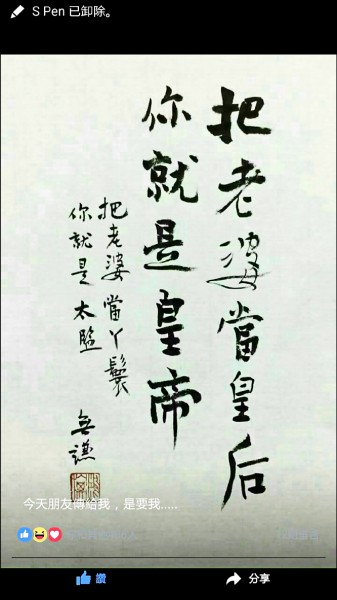 S Pen 已卸除。
把老婆當皇后
你就是皇帝
把老婆當丫鬟
你就是太監
謙
今天朋友傳給我，是要我.....
讚
分享